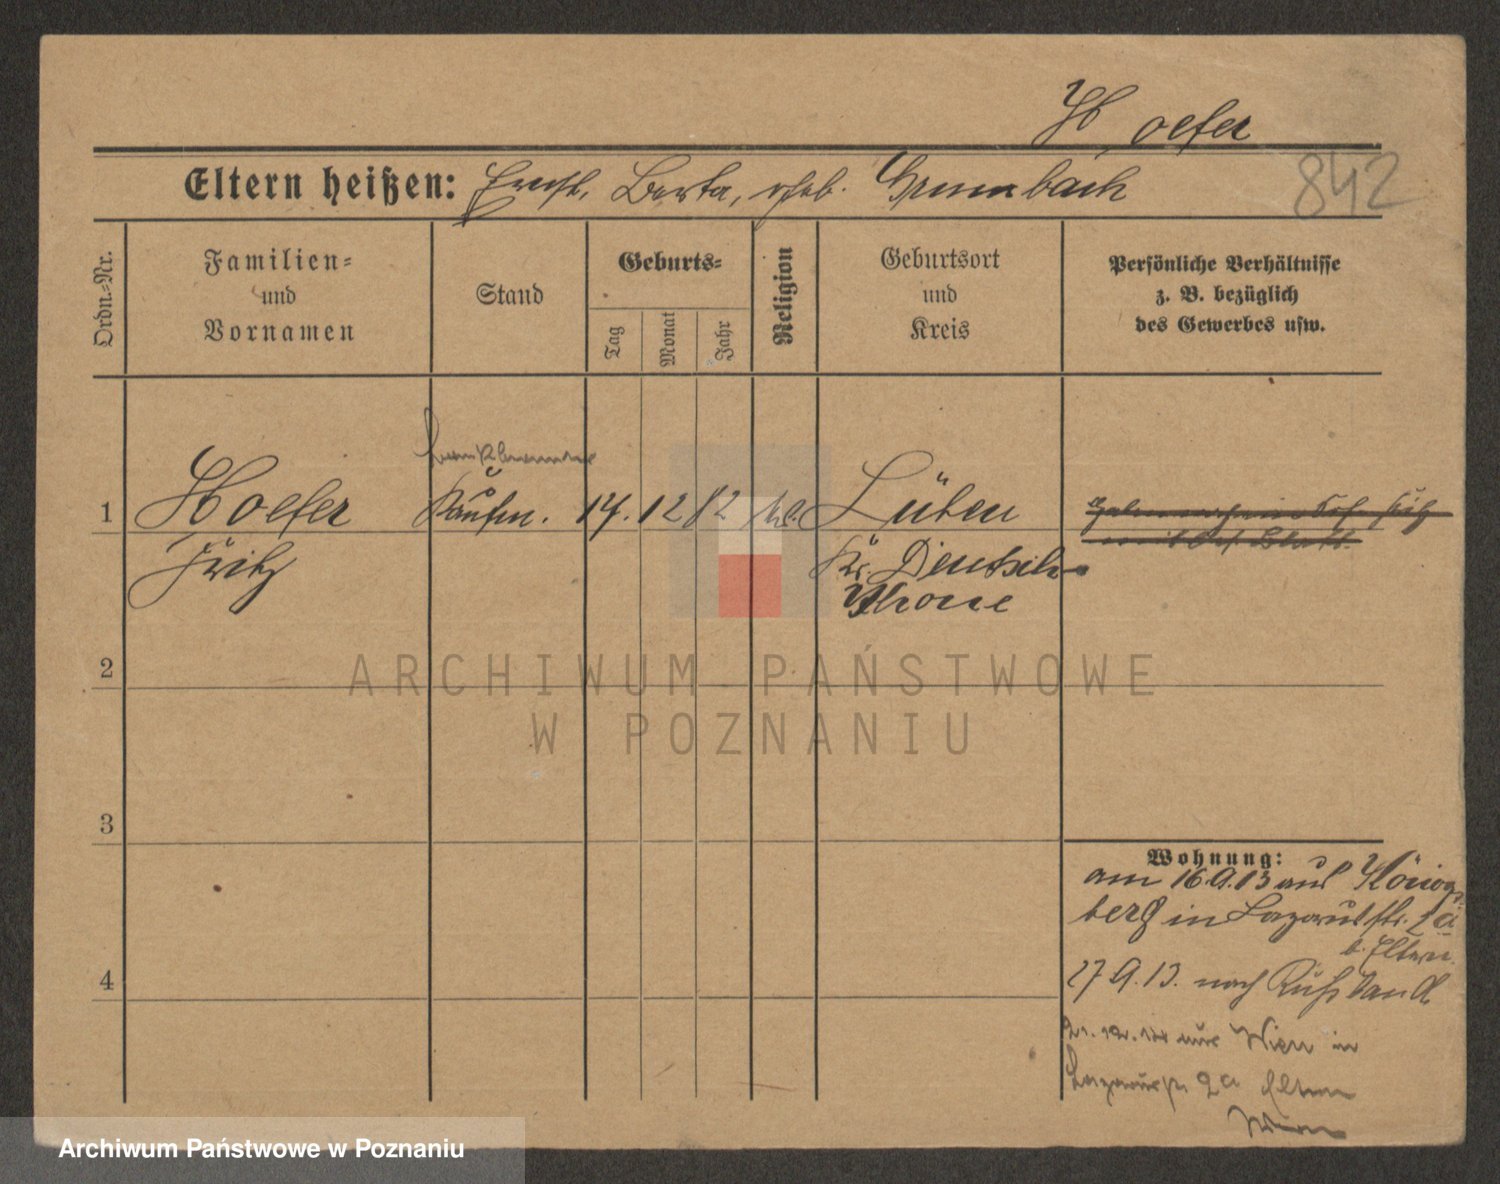 Hoefer
Eltern heißen: Ernst, Berta, geb. Grumbach
842
Ordn.=Nr.
Familien=
und
Vornamen
Stand
Geburts=
Tag
Monat
Jahr
Religion
Geburtsort
und
Kreis
Persönliche Verhältnisse
z. B. bezüglich
des Gewerbes usw.
1 Hoefer Kaufm. 14. 12 82 Lüben
Fritz Kr. Deutsch
Krone
2
3
4
Wohnung:
am 16.9.13 aus Königs
berg in Lazarusstr. 2a
b. Eltern.
27.9.13. nach Rußland
21.12.14 aus Wien in
Lazarusstr 2a Eltern
Wien
ARCHIWUM PAŃSTWOWE
W POZNANIU
Archiwum Państwowe w Poznaniu